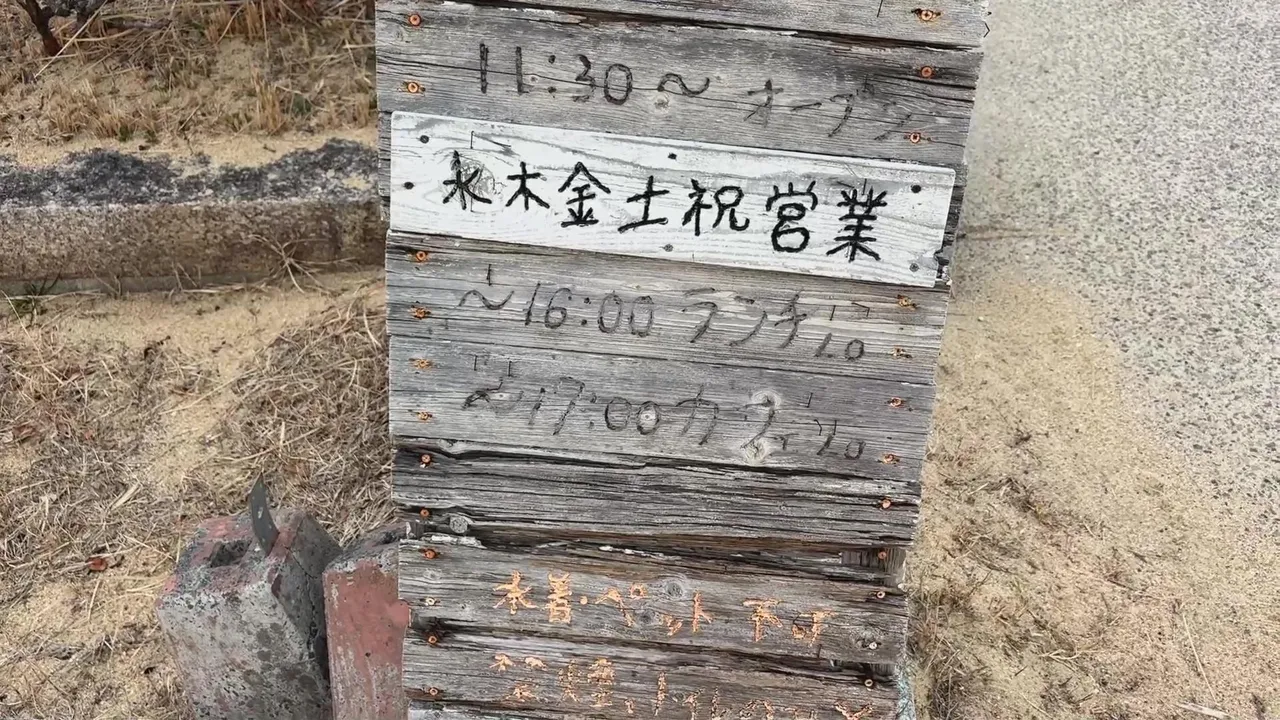 11:30〜 オープン
水木金土祝営業
〜16:00 ランチLo
〜17:00 カフェLo
水着・ペット不可